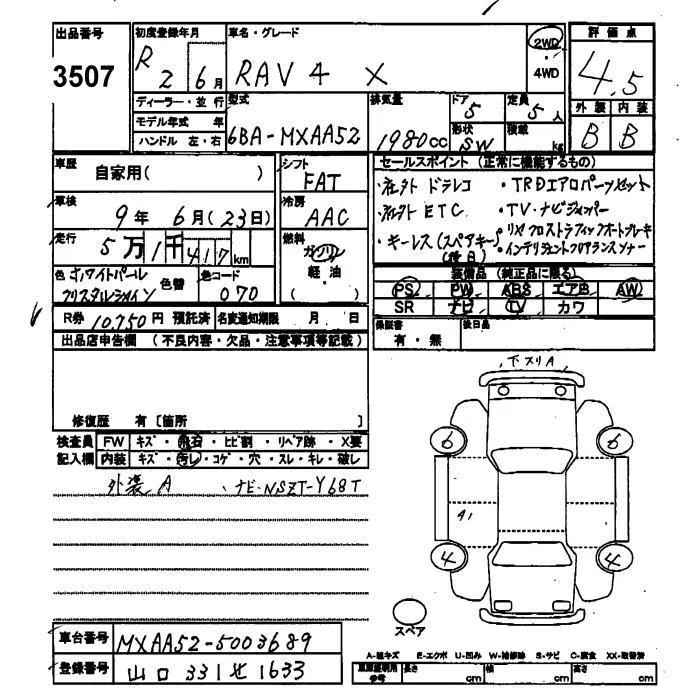 出品番号
3507
初度登録年月
R 2 年 6 月
車名・グレード
RAV4 X
2WD
・
4WD
評価点
4.5
外装 内装
B B
ディーラー・並行
モデル年式 年
ハンドル 左・右
型式
6BA-MXAA52
排気量
1980cc
ドア
5
定員
5人
形状
SW
積載
kg
車歴
自家用( )
車検
9年 6月(23日)
走行
5万1千417km
色 ホワイトパール
クリスタルシャイン
色替
色コード
070
シフト
FAT
冷房
AAC
燃料
ガソリン
軽・油
( )
セールスポイント(正常に機能するもの)
・社外ドラレコ
・社外ETC
・キーレス(スペアキー)
(後日)
・TRDエアロパーツセット
・TV・ナビジャンパー
・リヤクロストラフィックオートブレーキ
・インテリジェントクリアランスソナー
装備品(純正品に限る)
PS PW ABS エアB AW
SR ナビ TV カワ
R券 10,750円 預託済
名変通知期限 月 日
保証書
有・無
後日品
出品店申告欄(不良内容・欠品・注意事項等記載)
修復歴 有[箇所 ]
検査員
記入欄
FW キズ・飛石・ヒビ割・リペア跡・X要
内装 キズ・汚し・コゲ・穴・スレ・キレ・破し
外装A ・ナビ-NSZT-Y68T
下スリA
6 6
A1
4 4
スペア
車台番号 MXAA52-5003689
登録番号 山口 331 せ 1633
A-線キズ E-エクボ U-凹み W-補修跡 S-サビ C-腐食 XX-取替済
車庫証明用
参考
長さ cm 幅 cm 高さ cm